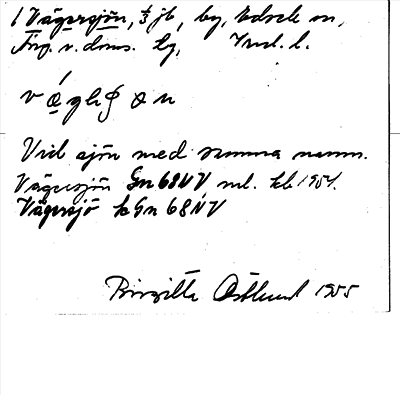 1 Vägersjön, 1/3 jb, by, Edsele sn,
Ång. v. doms. lg, Yml. l.
Vid sjön med samma namn.
Vägersjön Gn 68 NV ml. kb 1954.
Vägersjö k Gn 68 NV
Birgitta Östlund 1955